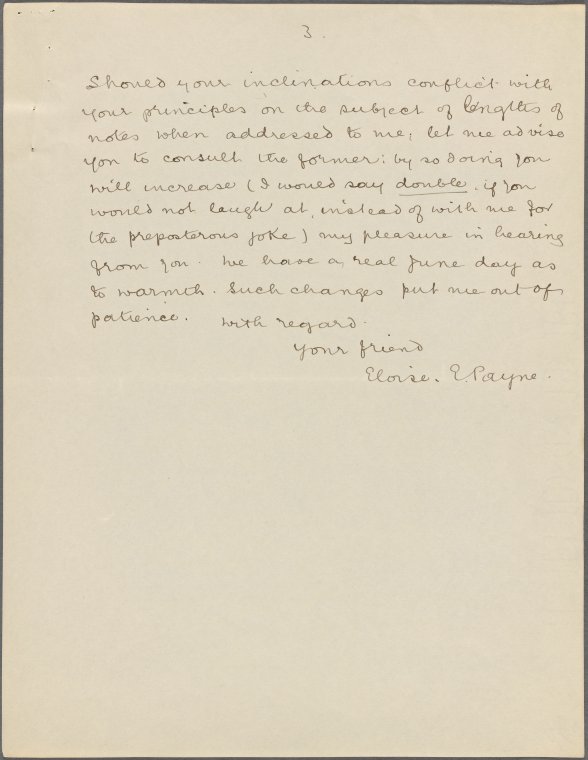 3.
Should your inclinations conflict with
your principles on the subject of lengths of
notes when addressed to me, let me advise
you to consult the former: by so doing you
will increase (I would say double, if you
would not laugh at, instead of with me for
the preposterous joke) my pleasure in hearing
from you. We have a real June day as
to warmth. Such changes put me out of
patience. With regard.
Your friend
Eloise. E. Payne.